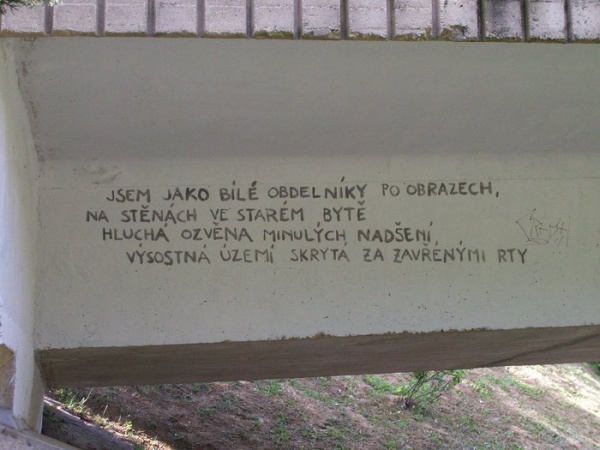 JSEM JAKO BÍLÉ OBDELNÍKY PO OBRAZECH,
NA STĚNÁCH VE STARÉM BYTĚ
HLUCHÁ OZVĚNA MINULÝCH NADŠENÍ,
VÝSOSTNÁ ÚZEMÍ SKRYTÁ ZA ZAVŘENÝMI RTY